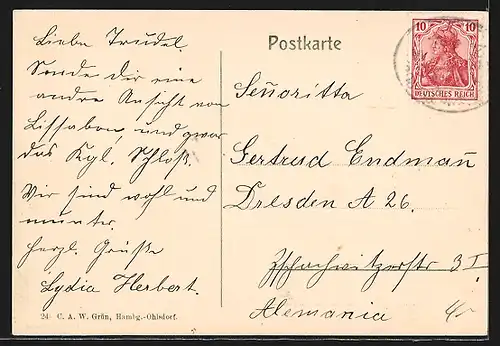 Liebe Trudel.
Sende dir eine
andre Ansicht von
Lissabon, und zwar
das Kgl. Schloß.
Wir sind wohl und
munter.
Herzl. Grüße
Lydia Herbert.
24 C. A. W. Grön, Hambg.-Ohlsdorf.
Postkarte
10 10
DEUTSCHES REICH
Señoritta
Gertrud Endmañ
Dresden A 26.
Zschachwitzerstr 3 I
Alemania